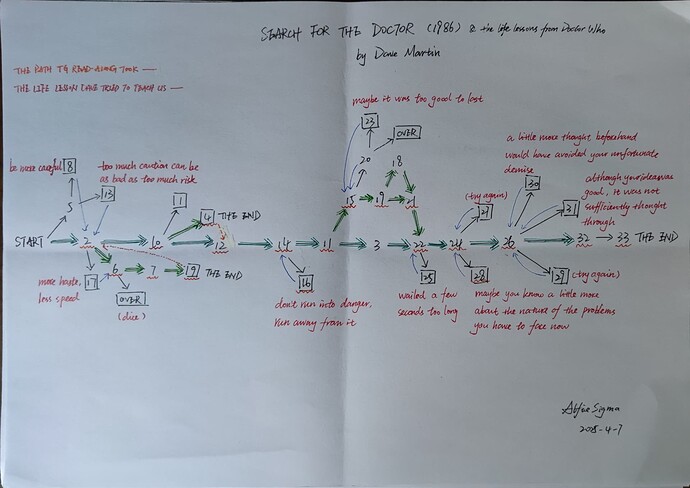 SEARCH FOR THE DOCTOR (1986) & the life lessons from Doctor Who
by Dave Martin
THE PATH TG READ-ALONG TOOK —
THE LIFE LESSON DAVE TRIED TO TEACH US —
maybe it was too good to last
23
OVER
a little more thought beforehand
would have avoided your unfortunate
demise
be more careful
8
too much caution can be
as bad as too much risk
20
18
30
although your idea was
good, it was not
sufficiently thought
through
5
13
1
15
19
21
(try again)
27
31
4
THE END
START
2
10
12
14
11
3
22
24
26
32
33
THE END
more haste,
less speed
17
6
7
9
THE END
16
25
28
29
(try again)
OVER
(dice)
don't run into danger,
run away from it
waited a few
seconds too long
maybe you know a little more
about the nature of the problems
you have to face now
2025-4-7